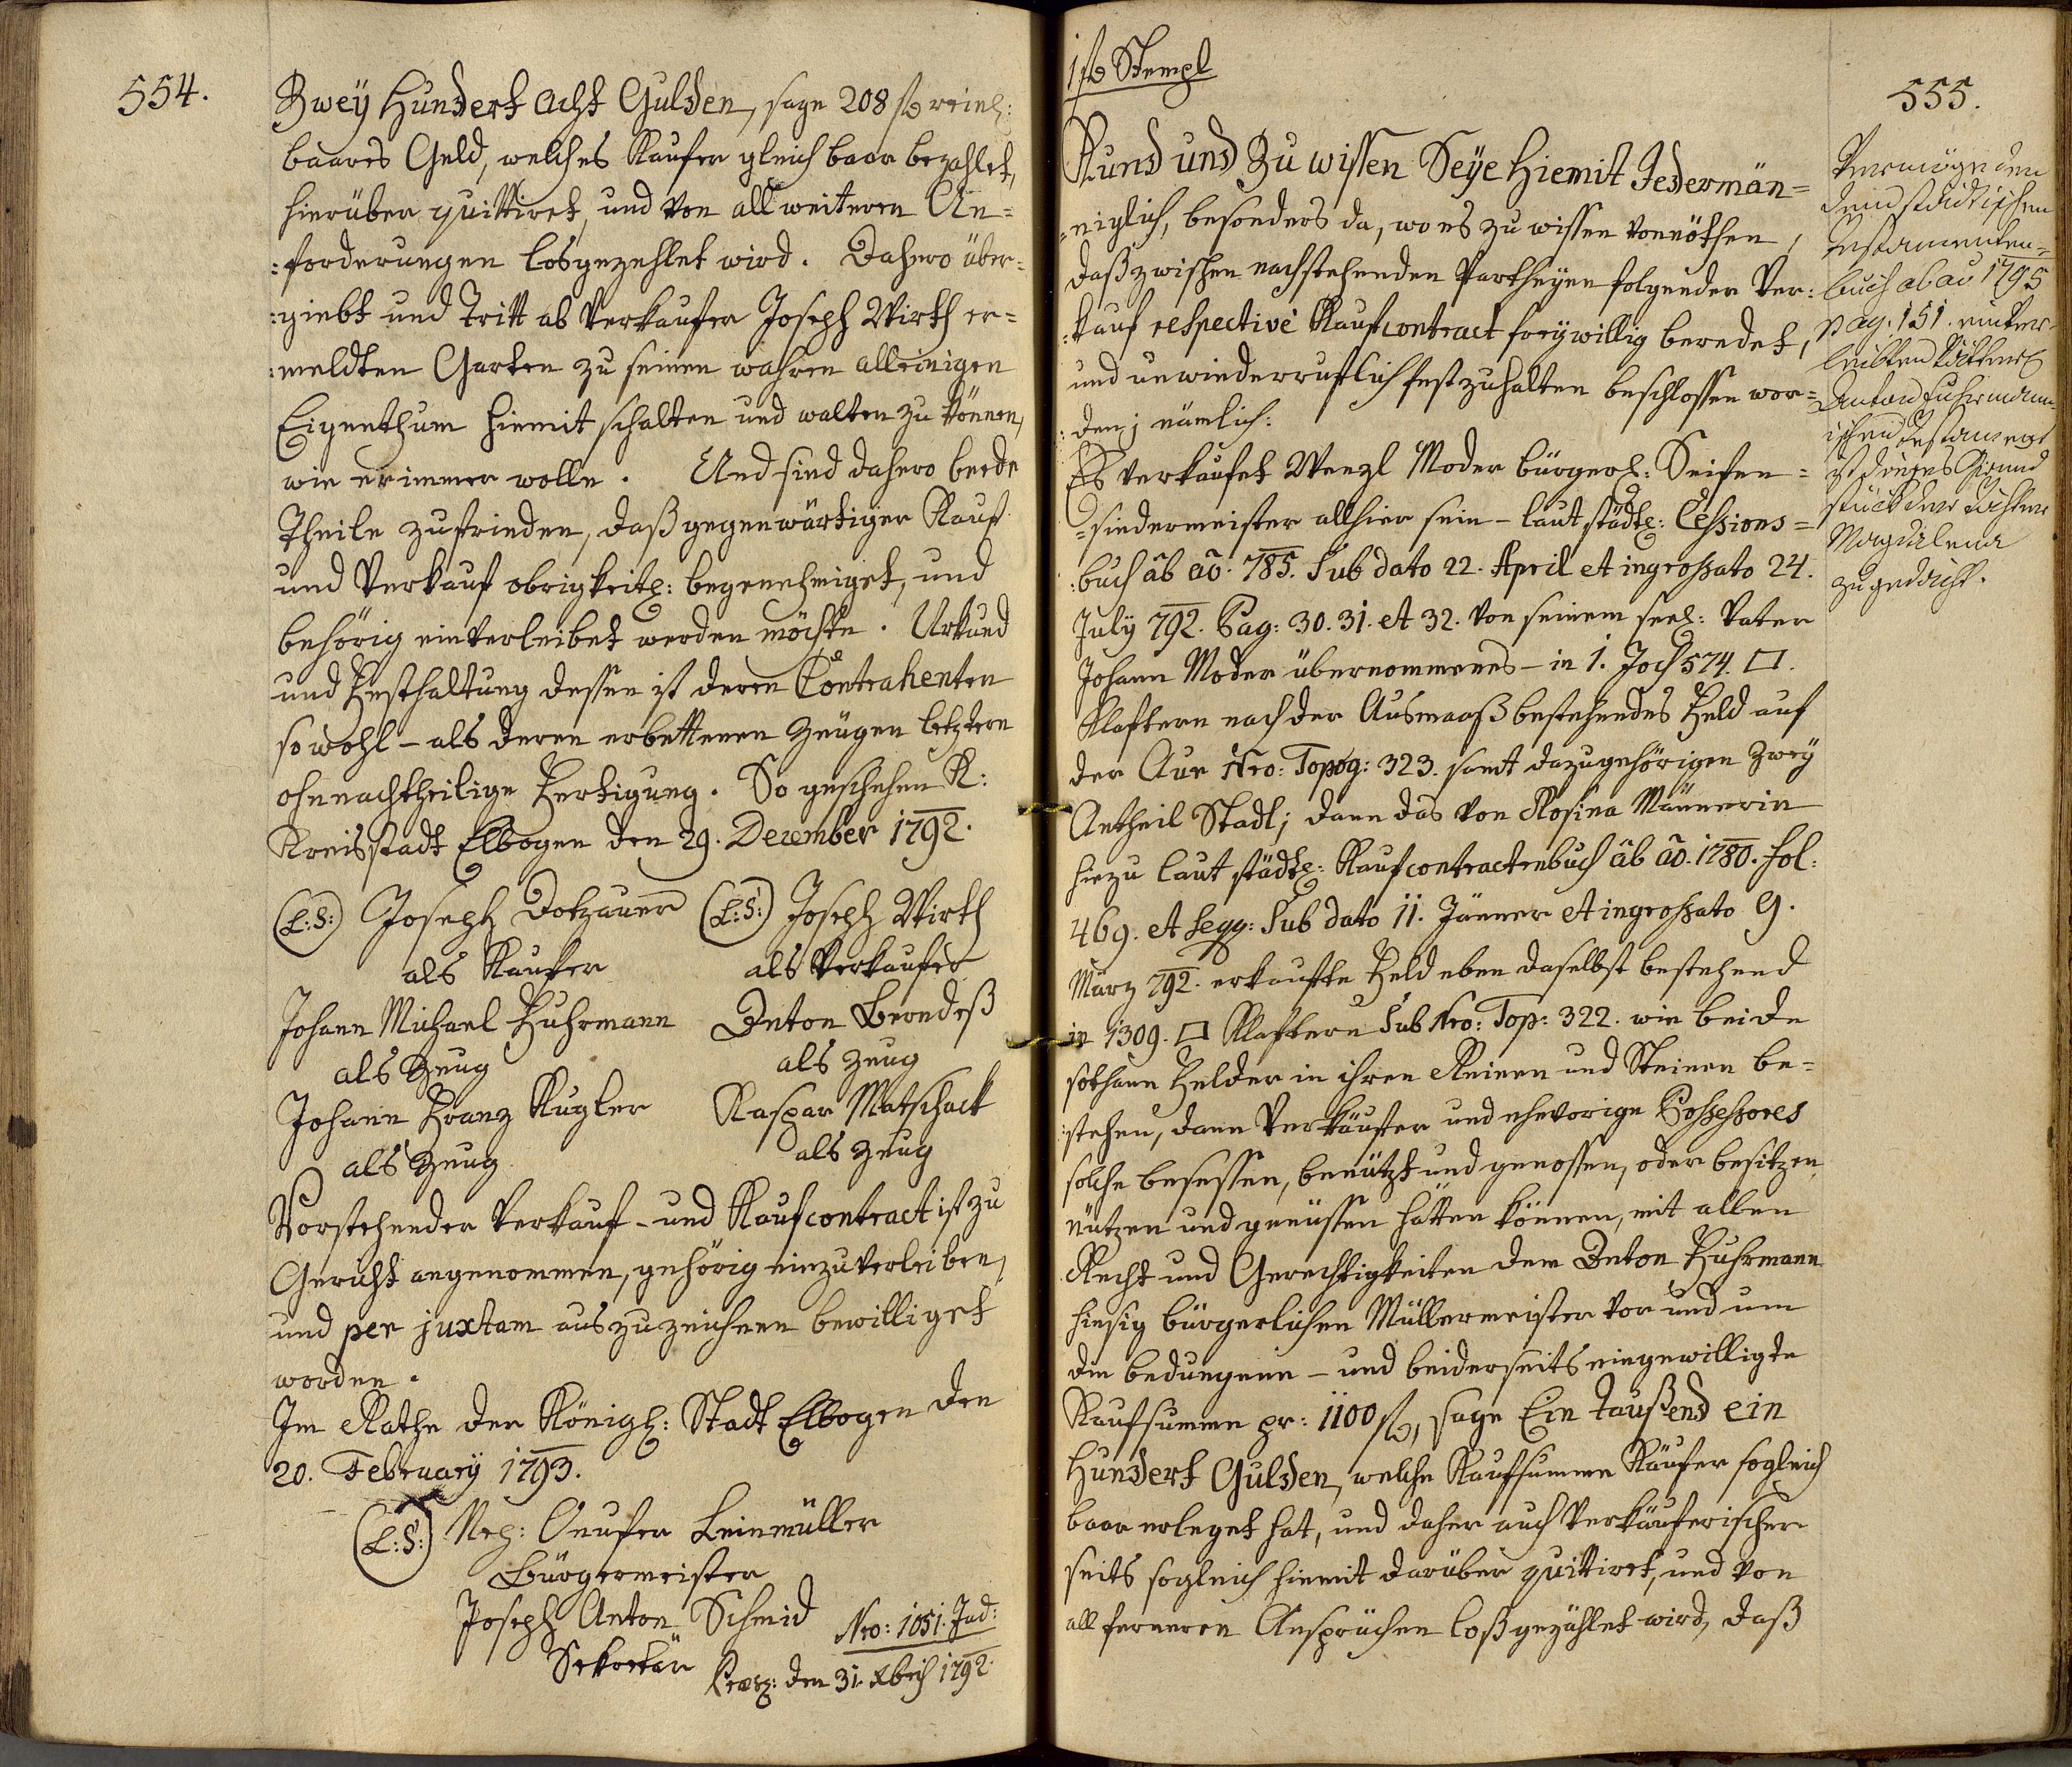 554.
Zwey Hundert Acht Gulden, sage 208 f reinl:
baares Geld, welches Kaufer gleich baar bezahlet,
hierüber quittiret, und von all weiteren An=
=forderungen losgezehlet wird. Dahero über=
=giebt und Tritt ab Verkaufer Joseph Wirth er=
=meldten Garten zu seinen wahren alleinigen
Eigenthum hiemit schalten und walten zu können,
wie er immer wolle. Und sind dahero beede
Theile zufrieden, daß gegenwärtiger Kauf
und Verkauf obrigkeitl: begenehmiget, und
behörig einverleibet werden möchte. Urkund
und Festhaltung dessen ist deren Contrahenten
sowohl – als deren erbettenen Zeugen letztern
ohnenachtheilige Fertigung. So geschehen K:
Kreisstadt Elbogen den 29. December 1792.
(L:S:) Joseph Dotzauer (L:S:) Joseph Wirth
als Kaufer als Verkaufer
Johann Michael Fuhrmann Anton Berndeß
als Zeug als Zeug
Johann Franz Kugler Kaspar Matschack
als Zeug als Zeug
Vorstehender Verkauf- und Kaufcontract ist zu
Gericht angenommen, gehörig einzuverleiben,
und per juxtam auszuzeichnen bewilliget
worden.
Im Rathe der Königl: Stadt Elbogen den
20. February 1793.
(L:S:) Leinmüller
Bürgermeister
Joseph Anton Schmid Nro: 1051. Jud:
Sekretär Præs: den 31. Xbris 1792.
1 f Stempl
555.
Kund und Zu wissen Seye hiemit Jedermän=
=niglich, besonders da, wo es zu wissen vonnöthen,
daß zwischen nachstehenden Partheyen folgender Ver=
=kauf respective Kaufcontract freywillig beredet,
und unwiederruflich festzuhalten beschlossen wor=
=den; nämlich:
Es verkaufet Wenzl Moder bürgerl: Seifen=
=siedermeister allhier sein – laut städtl: Cessions=
=buch ab ao. 785. Sub dato 22. April et ingrossato 24.
July 792. Pag: 30. 31. et 32. von seinem seel: Vater
Johann Moder übernommenes – in 1. Joch 574. □.
Klaftern nach der Ausmaaß bestehendes Feld auf
der Aue Nro: Topog: 323. samt dazugehörigen Zwey
Antheil Stadl; dann das von Rosina Männerin
hiezu laut städtl: Kaufcontractenbuch ab ao. 1780. fol:
469. et seqq: Sub dato 11. Jänner et ingrossato 9.
März 792. erkaufte Feld eben daselbst bestehend
in 1309. □ Klaftern Sub Nro: Top: 322. wie beide
sothane Felder in ihren Reinen und Steinen be=
=stehen, dann Verkäufer und ehevorige Possessores
solche besessen, benützt und genossen, oder besitzen,
nützen und genüssen hätten können, mit allen
Recht und Gerechtigkeiten dem Anton Fuhrmann
hiesig bürgerlichen Müllermeister vor und um
die bedungene – und beiderseits eingewilligte
Kaufsumme pr: 1100 f, sage Ein taußend ein
Hundert Gulden, welche Kaufsumme Käufer sogleich
baar erleget hat, und daher auch Verkäuferischer
seits sogleich hiemit darüber quittiret, und von
all ferneren Ansprüchen loßgezählet wird, daß
Vermöge den
städtischen
Testamenten=
buch ab ao 1795
pag. 151. einver=
leibten
Anton Fuhrmann=
ischen Testament
ist dieses Grund
stück der Tochter
Magdalena
zugedacht.